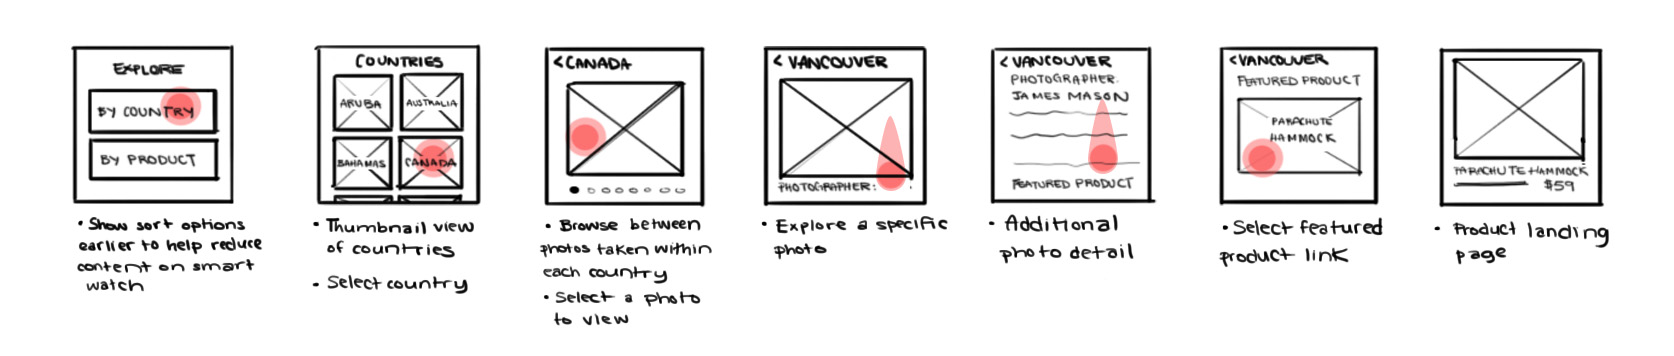 EXPLORE
BY COUNTRY
BY PRODUCT
• Show sort options
earlier to help reduce
content on smart
watch
COUNTRIES
ARUBA
AUSTRALIA
BAHAMAS
CANADA
• Thumbnail view
of countries
• Select country
<CANADA
• Browse between
photos taken within
each country
• Select a photo
to view
< VANCOUVER
PHOTOGRAPHER:
• Explore a specific
photo
< VANCOUVER
PHOTOGRAPHER:
JAMES MASON
FEATURED PRODUCT
• Additional
photo detail
<VANCOUVER
FEATURED PRODUCT
PARACHUTE
HAMMOCK
• Select featured
product link
PARACHUTE HAMMOCK
$59
• Product landing
page